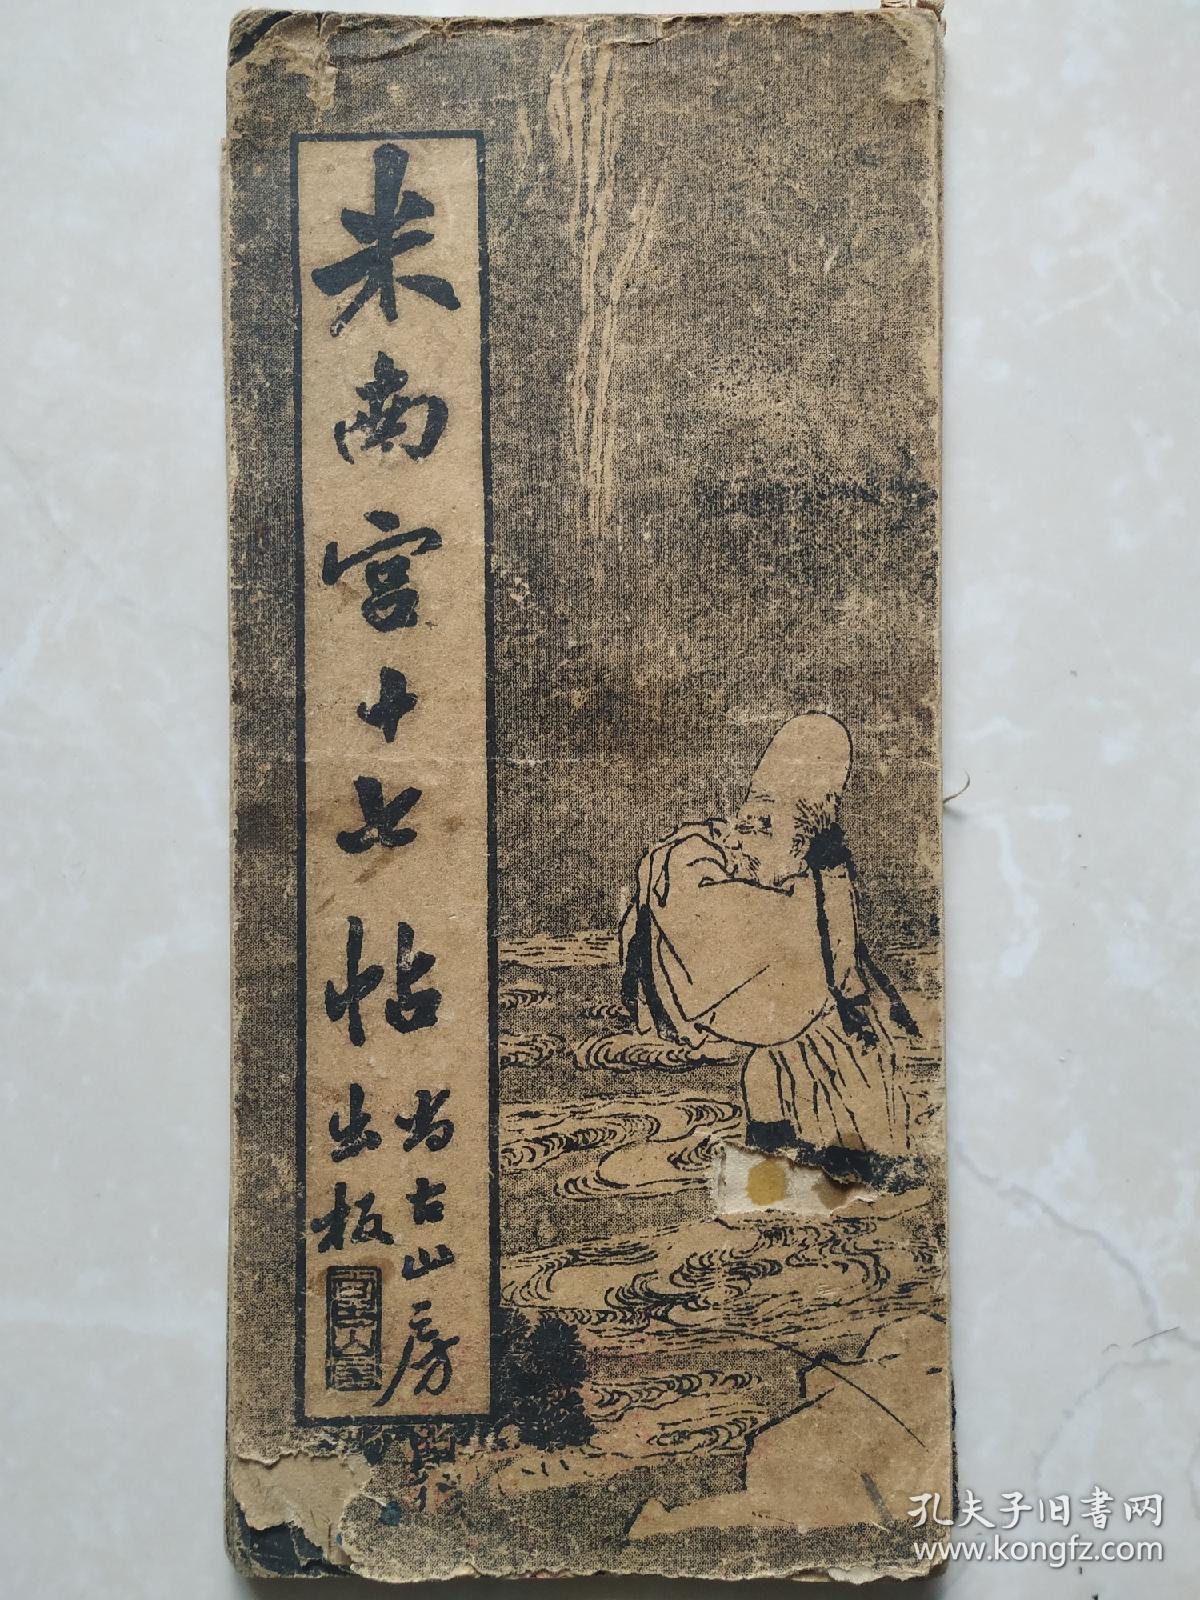 米南宫十七帖
尚古山房
出板
孔夫子旧书网
www.kongfz.com